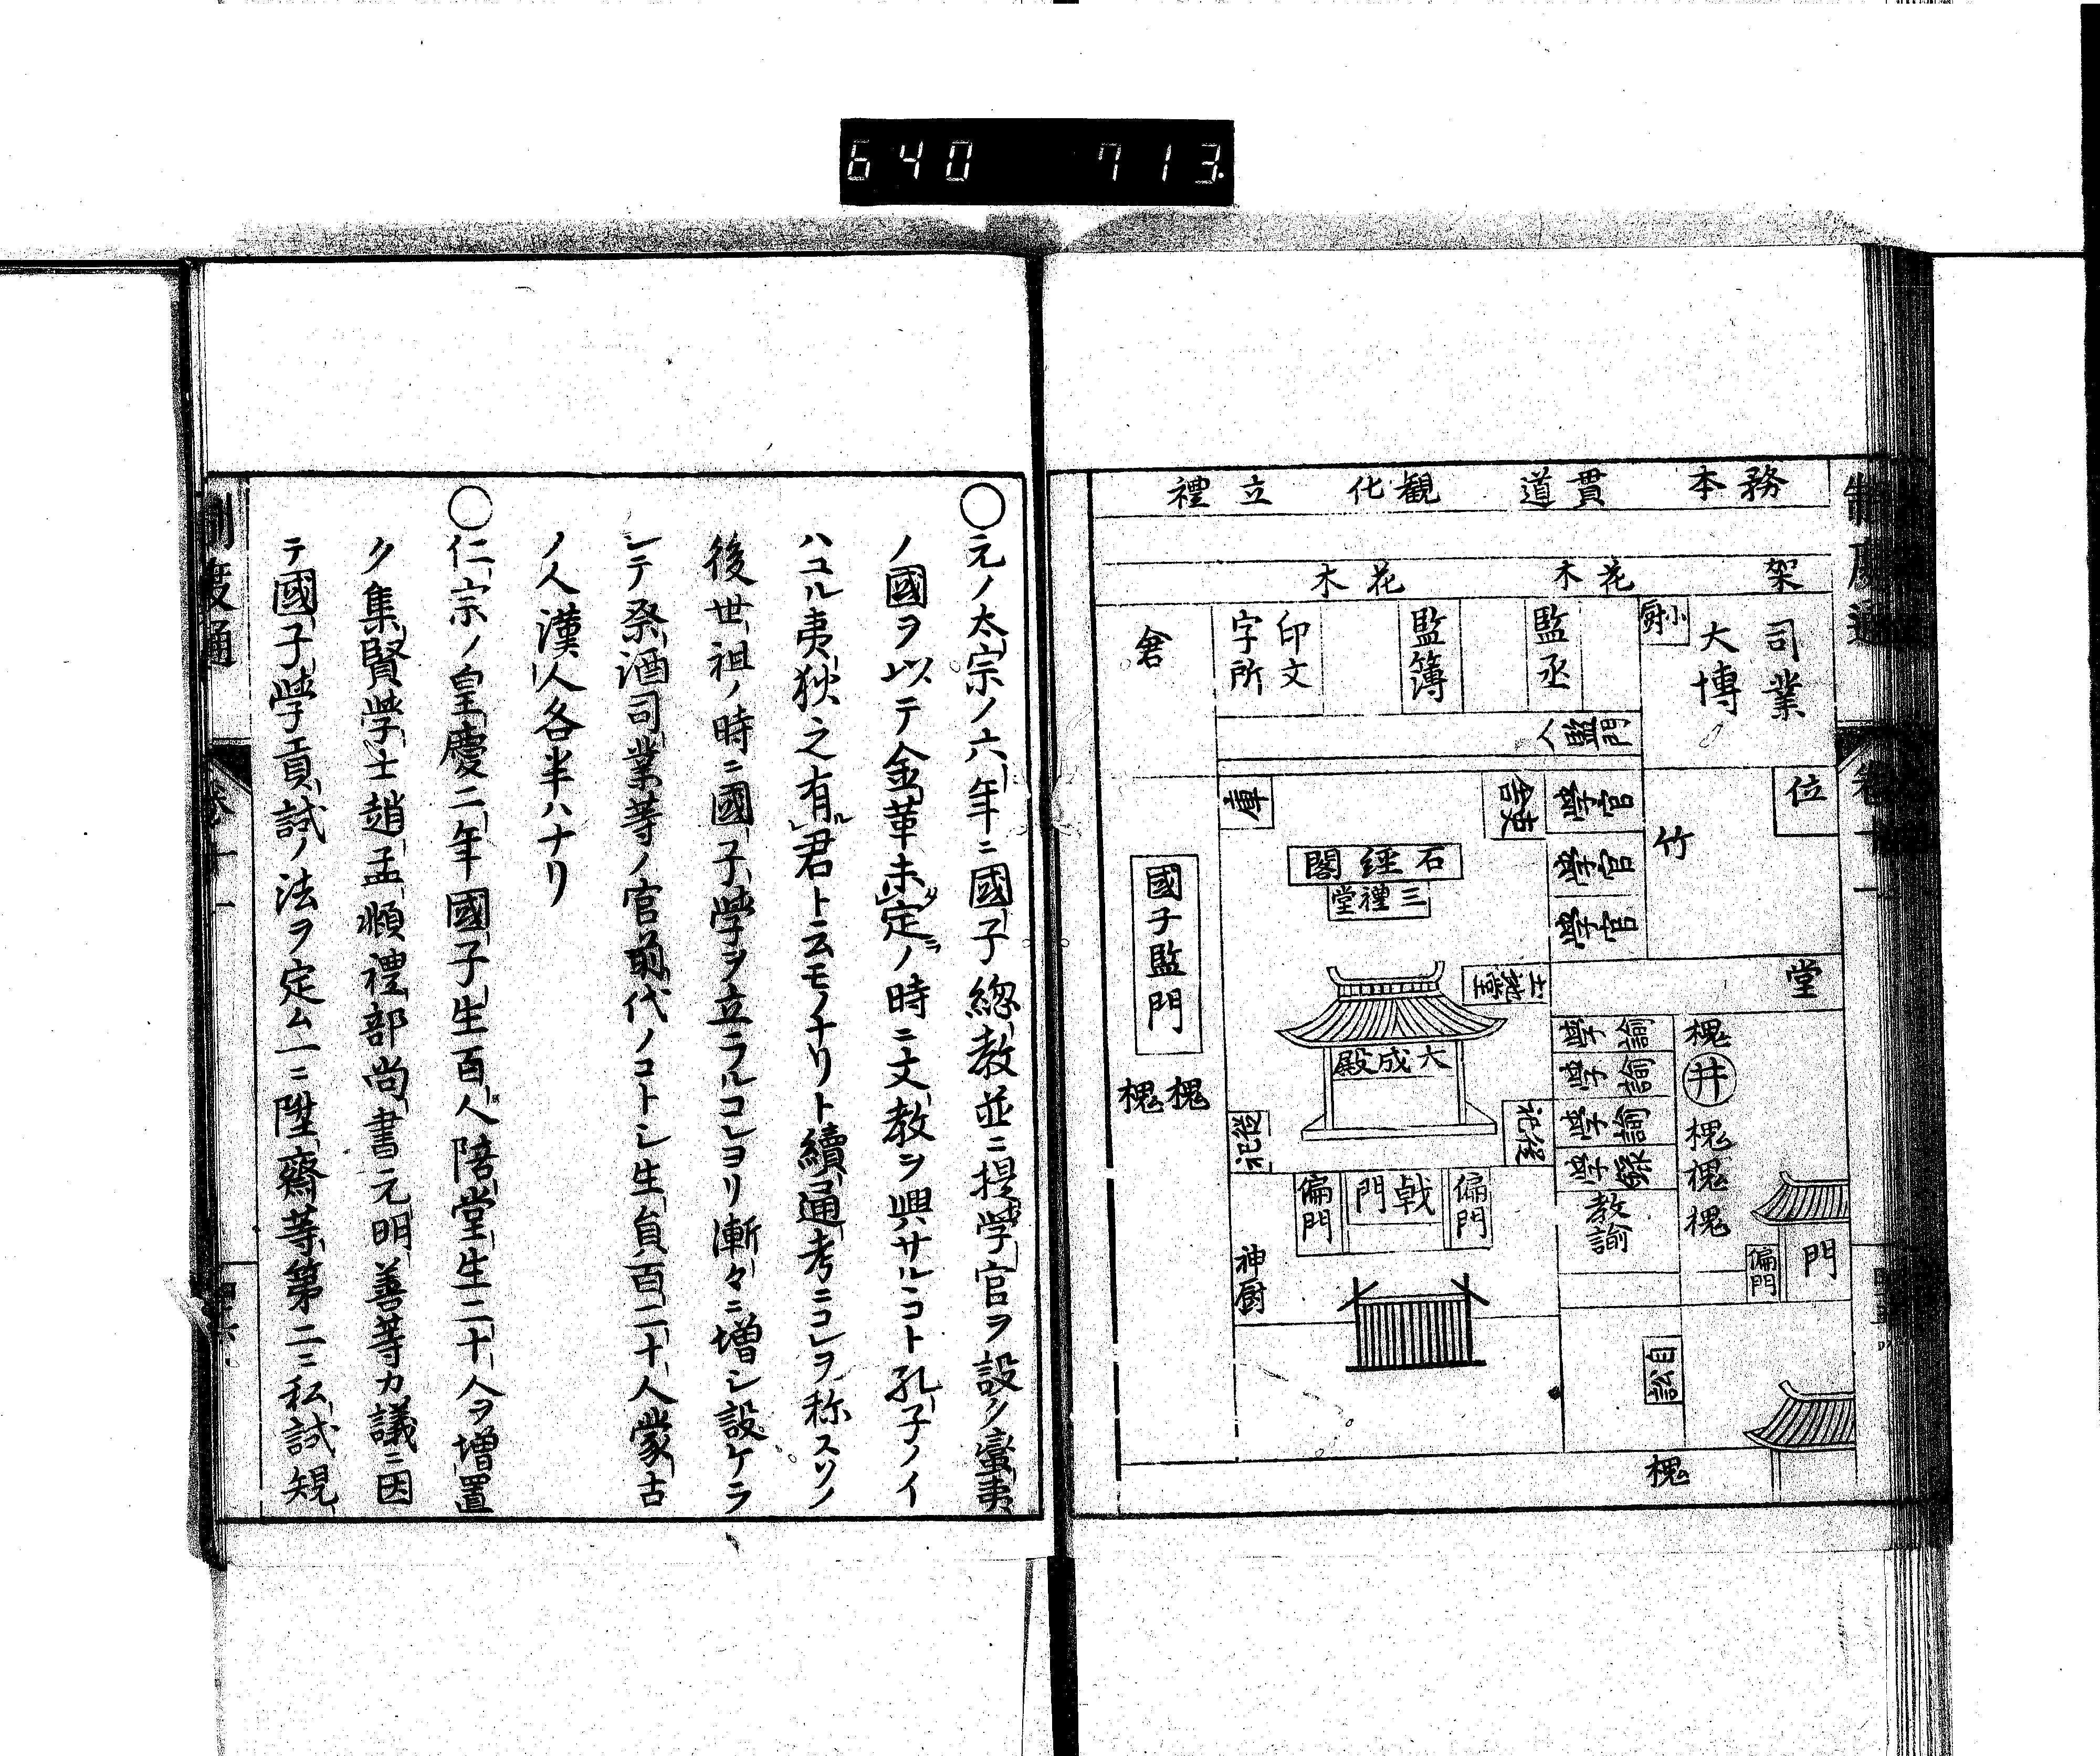 640 713
務本
貫道
観化
立禮
架
花木
花木
司業
大博
小厨
監丞
監簿
印文
字所
倉
門監人
位
竹
学官
学官
学官
庫
石經閣
三禮堂
國子監門
槐槐
大成殿
堂
学諭
学諭
学諭
学録
教諭
槐
井
槐
槐
槐
從祀
從祀
偏門
戟門
偏門
神厨
門
偏門
自訟
槐
○元ノ太宗ノ六年ニ國子総教並ニ提学官ヲ設ク蛮夷
ノ國ヲ以テ金革未定ノ時ニ文教ヲ興サルコト孔子ノイ
ハユル夷狄之有君ト云モノナリト續通考ニコレヲ称スソノ
後世祖ノ時ニ國子学ヲ立ラルコレヨリ漸々ニ増シ設ケラ
レテ祭酒司業等ノ官前代ノコトシ生員百二十人蒙古
ノ人漢人各半ハナリ
○仁宗ノ皇慶二年國子生百人陪堂生二十人ヲ増置
ク集賢学士趙孟頫禮部尚書元明善等カ議ニ因
テ國子学貢試ノ法ヲ定ム一ニ陞齋等第二ニ私試規
制度通